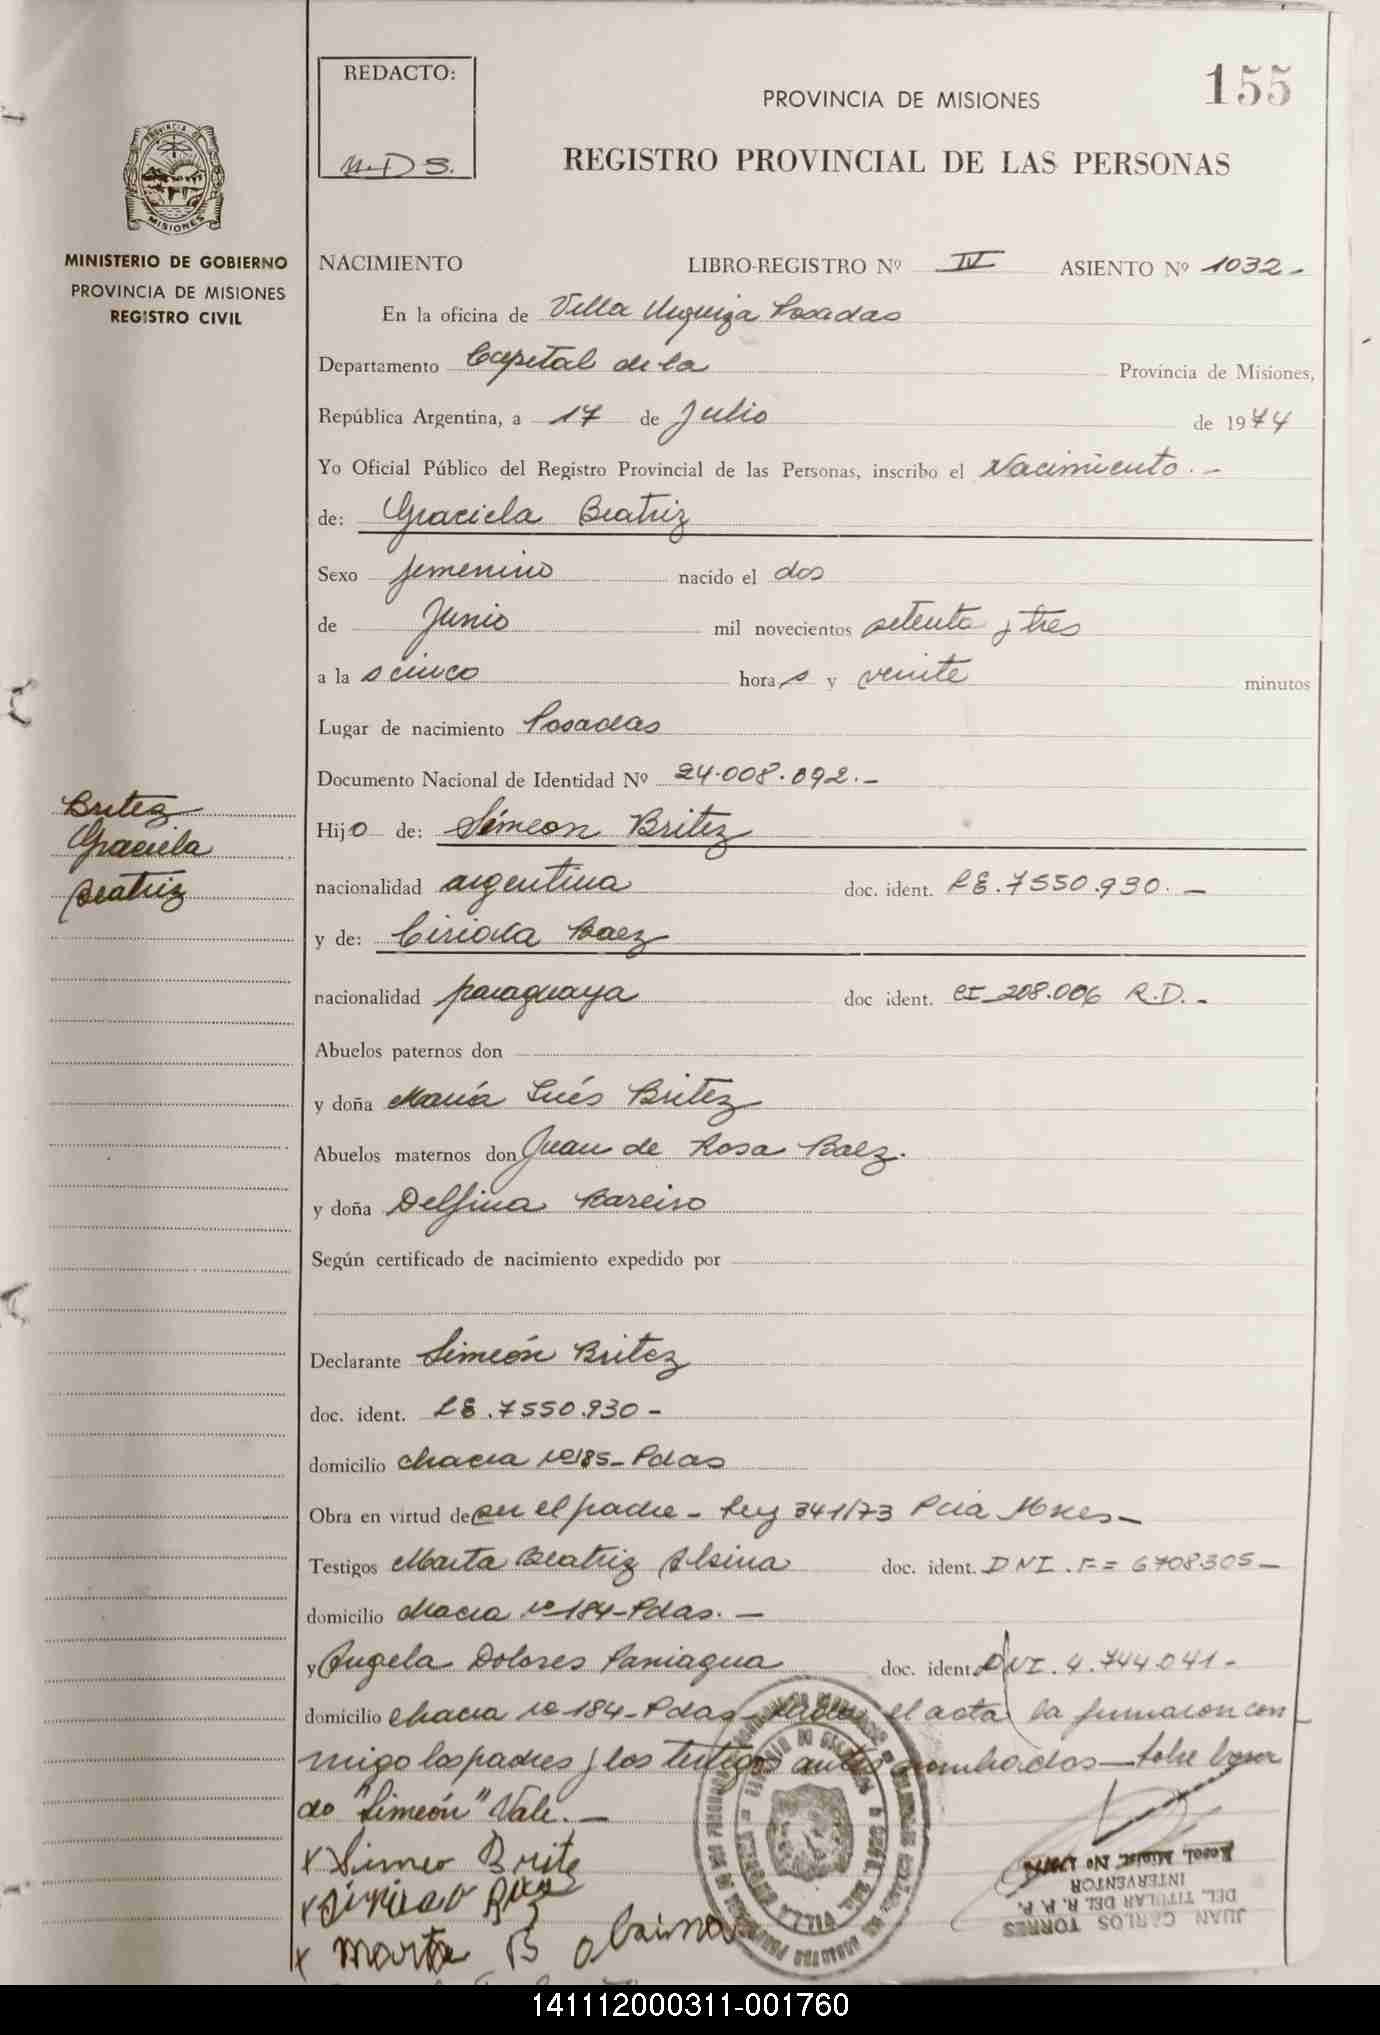 REDACTO:
M.D S.
PROVINCIA DE MISIONES
155
REGISTRO PROVINCIAL DE LAS PERSONAS
PROVINCIA DE
MISIONES
MINISTERIO DE GOBIERNO
PROVINCIA DE MISIONES
REGISTRO CIVIL
NACIMIENTO LIBRO-REGISTRO Nº IV ASIENTO Nº 1032.-
En la oficina de Villa Urquiza Posadas
Departamento Capital de la Provincia de Misiones,
República Argentina, a 17 de Julio de 1974
Yo Oficial Público del Registro Provincial de las Personas, inscribo el Nacimiento.-
de: Graciela Beatriz
Sexo femenino nacido el dos
de Junio mil novecientos setenta y tres
a la s cinco hora s y veinte minutos
Lugar de nacimiento Posadas
Documento Nacional de Identidad Nº 24.008.092.-
Britez
Graciela
Beatriz
Hijo de: Simeon Britez
nacionalidad argentina doc. ident. LE.7550.930.-
y de: Ciriaca Baez
nacionalidad paraguaya doc ident. CI 208.006 R.D.-
Abuelos paternos don
y doña María Inés Britez
Abuelos maternos don Juan de Rosa Baez.
y doña Delfina Bareiro
Según certificado de nacimiento expedido por
Declarante Simeón Britez
doc. ident. LE.7550.930-
domicilio chacra Nº185-Pdas
Obra en virtud de ser el padre - Ley 341/73 Pcia Mnes-
Testigos Marta Beatriz Alsina doc. ident. DNI.F= 6708305-
domicilio chacra Nº 184-Pdas.-
y Angela Dolores Paniagua doc. ident. DNI.4.744.041-
domicilio chacra Nº 184-Pdas- el acta la firmaron con
migo los padres y los testigos antes nombrados- Sobre borra
do "Simeón" Vale.-
x Simeo Brite
x
x Marta B alsina
JUAN CARLOS TORRES
DEL. TITULAR DEL R. P. P.
INTERVENTOR
141112000311-001760